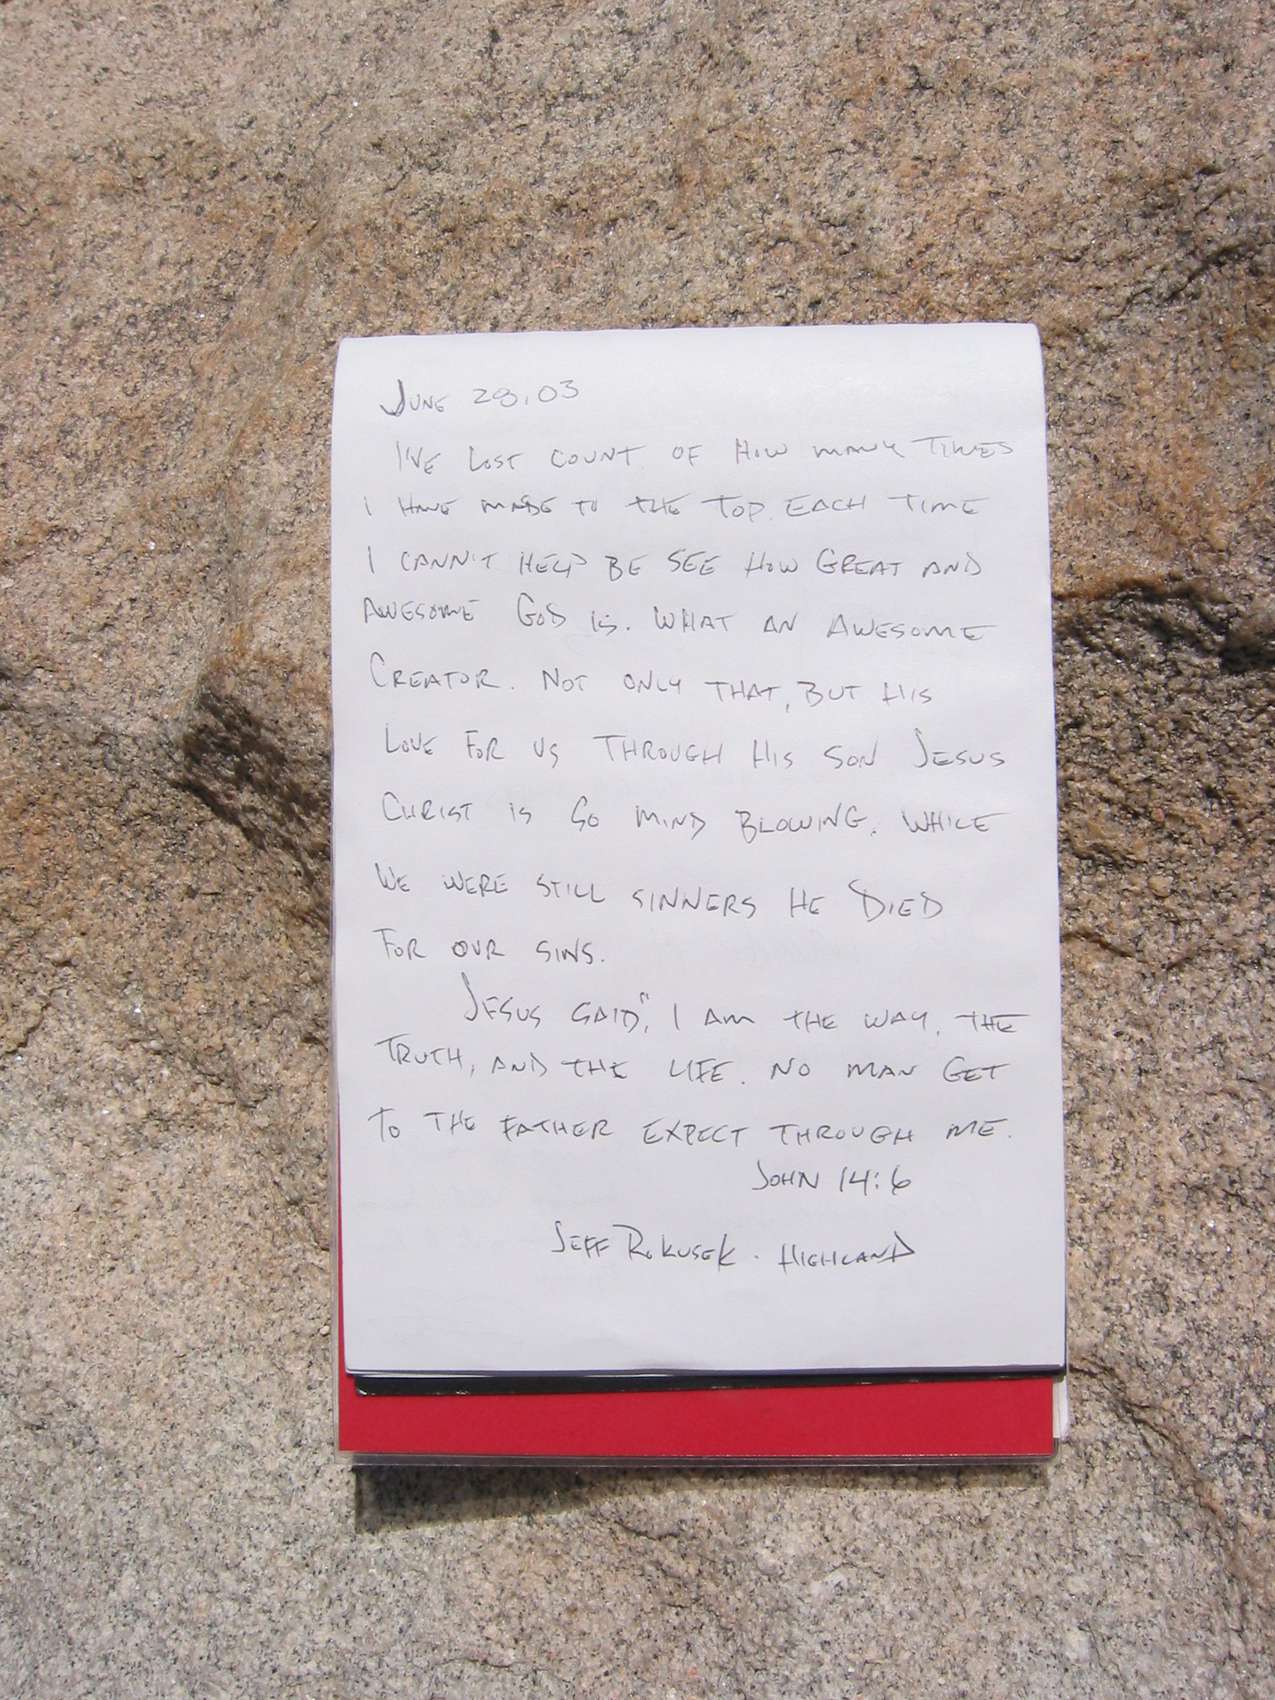 JUNE 28, 03
I'VE LOST COUNT OF HOW MANY TIMES
I HAVE MADE TO THE TOP. EACH TIME
I CANN'T HELP BE SEE HOW GREAT AND
AWESOME GOD IS. WHAT AN AWESOME
CREATOR. NOT ONLY THAT, BUT HIS
LOVE FOR US THROUGH HIS SON JESUS
CHRIST IS SO MIND BLOWING. WHILE
WE WERE STILL SINNERS HE DIED
FOR OUR SINS.
JESUS SAID," I AM THE WAY, THE
TRUTH, AND THE LIFE. NO MAN GET
TO THE FATHER EXPECT THROUGH ME.
JOHN 14:6
JEFF ROKUSEK . HIGHLAND